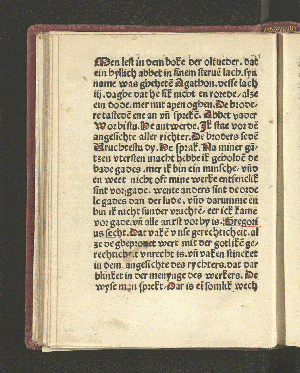 Men lest in dem boke der oltueder. dat
ein hyllich abbet in sinem steruē lach. syn
name was gheheten Agathon. desse lach
iij. daghe dat he sik nicht en rorede. alze
ein dode. mer mit apen oghen. De brode-
re tastedē ene an vñ sprekē. Abbet vader
Wor bistu. He antwerde. Ik sta vor dē
angesichte aller richter. De broders sedē
Vruchtestu dy. He sprak. Na miner gā-
tzen vtersten macht hebbe ik geholdē de
bade gades. mer ik bin ein minsche. vñ
en weet nicht oft mine werke entfencklik
sint vor gade. wente anders sint de orde
le gades dan der lude. vñ darumme en
bin ik nicht sunder vruchtē. eer ick kame
vor gade. vñ alle anxst vorby is. Gregori
us secht. Dat vakē vnse gerechticheit. al
ze de gheprouet wert mit der gotlikē ge-
rechticheit vnrecht is. vñ vaken stincket
in dem angesichte des rychters. dat dar
blincket in der meynynge des werkers. De
wyse man sprekt. Dar is ei somlik wech